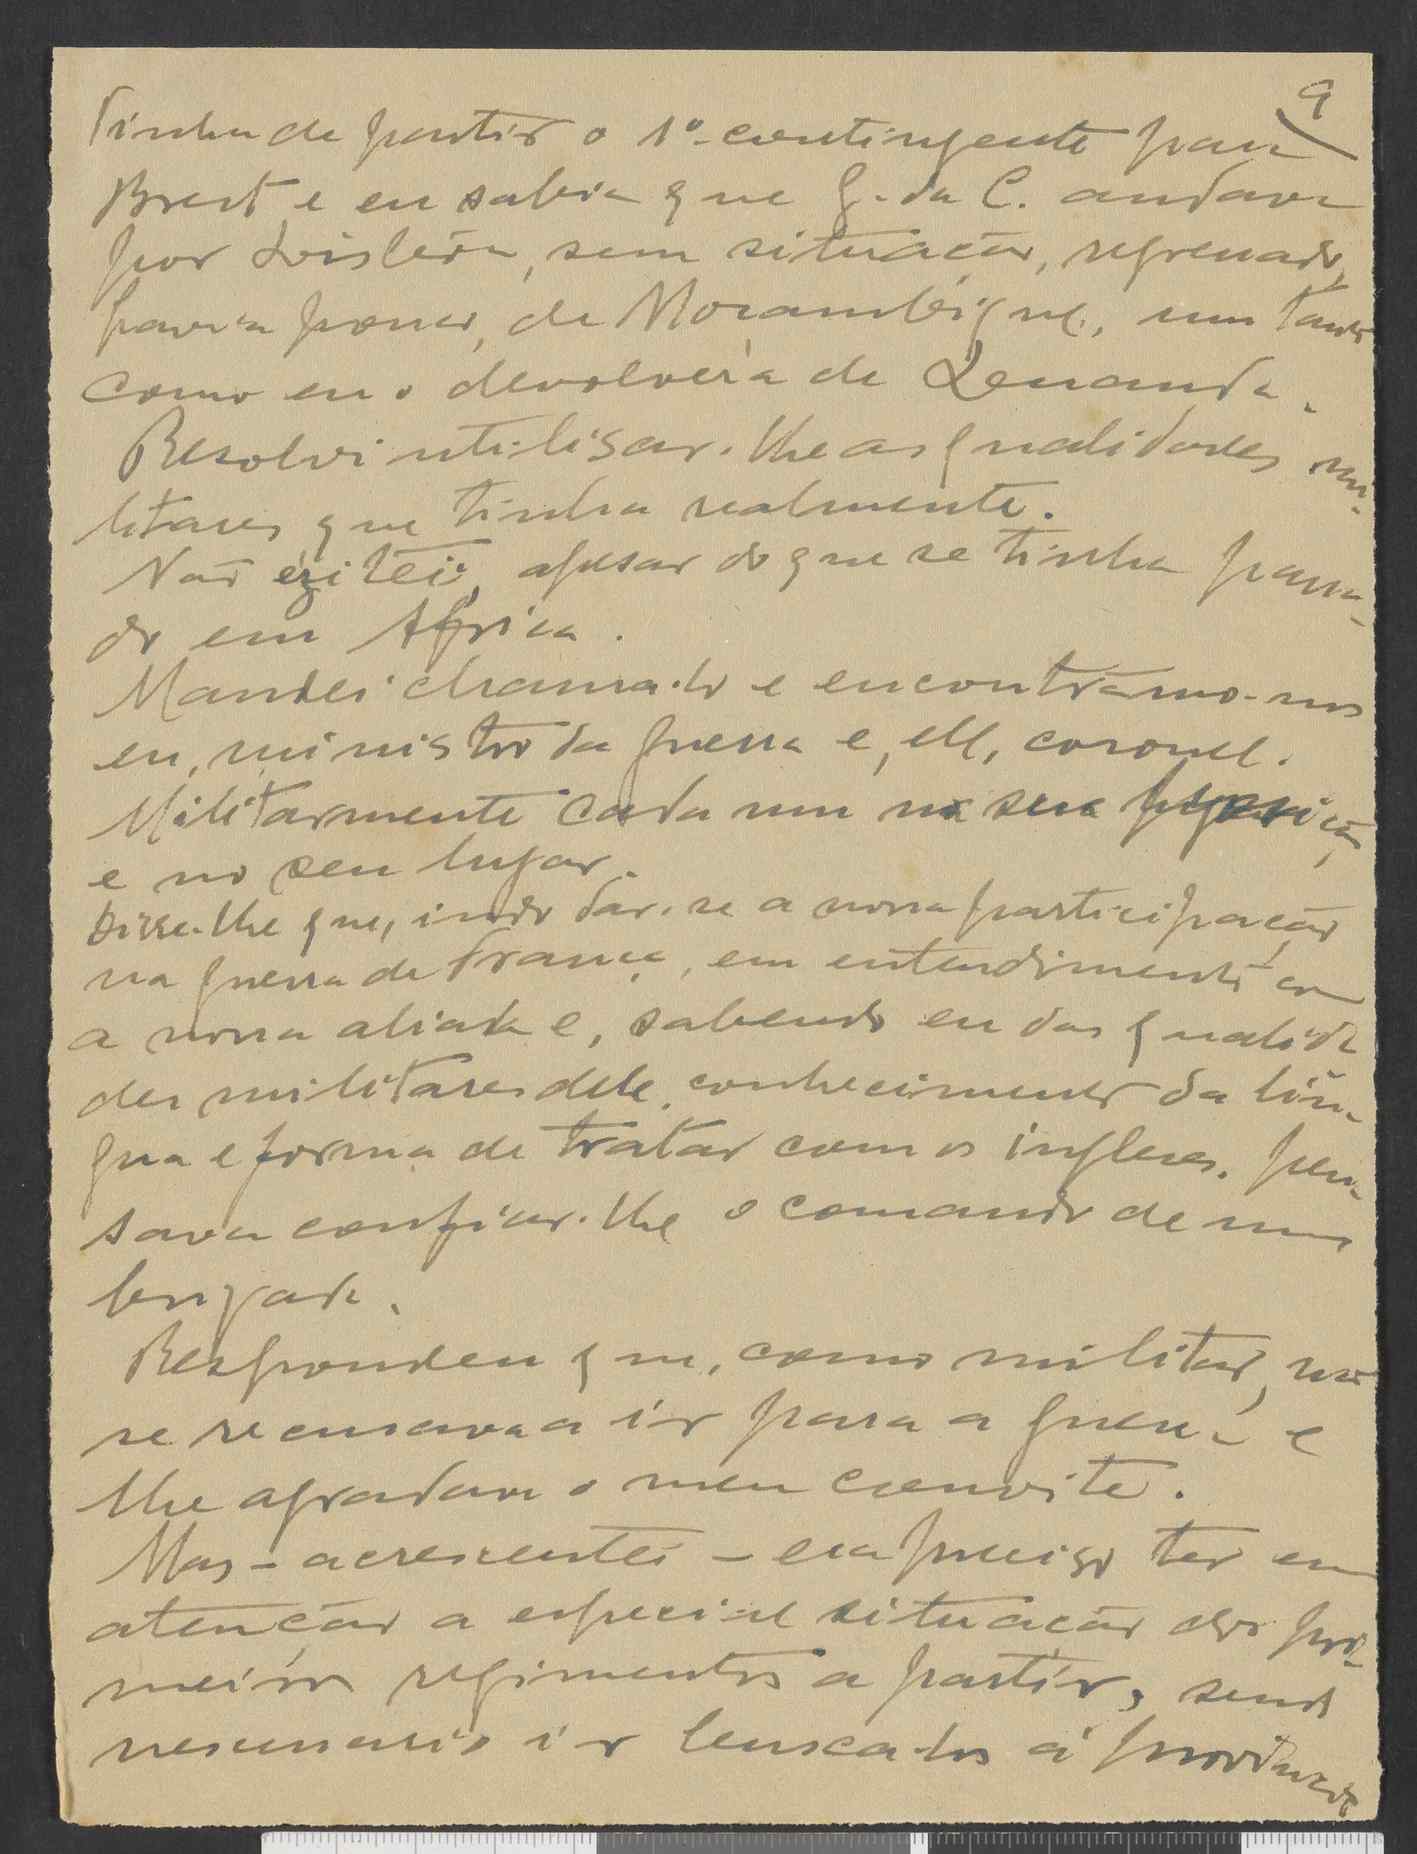 9
Tinha de partir o 1º contingente para
Brest e eu sabia que G. da C. andava
por Lisbôa, sem situação, regressado,
havia pouco, de Moçambique, um tanto
como eu o devolvera de Luanda.
Resolvi utilisar-lhe as qualidades mi-
litares que tinha realmente.
Não ezitei, apesar do que se tinha passa-
do em Africa.
Mandei chama-lo e encontrámo-nos
eu, ministro da guerra e, ele, coronel.
Militarmente cada um na sua posição
e no seu lugar.
Disse-lhe que, indo dar-se a nossa participação
na guerra de França, em entendimento com
a nossa aliada e, sabendo eu das qualida
des militares dele, conhecimento da lín-
gua e forma de tratar com os ingleses, pen-
sava confiar-lhe o comando de uma
brigada.
Respondeu que, como militar, não
se recusava a ir para a guerra e
lhe agradava o meu convite.
Mas – acrescentei – era preciso ter em
atenção a especial situação dos pri-
meiros regimentos a partir, sendo
necessario ir busca-los á provincia